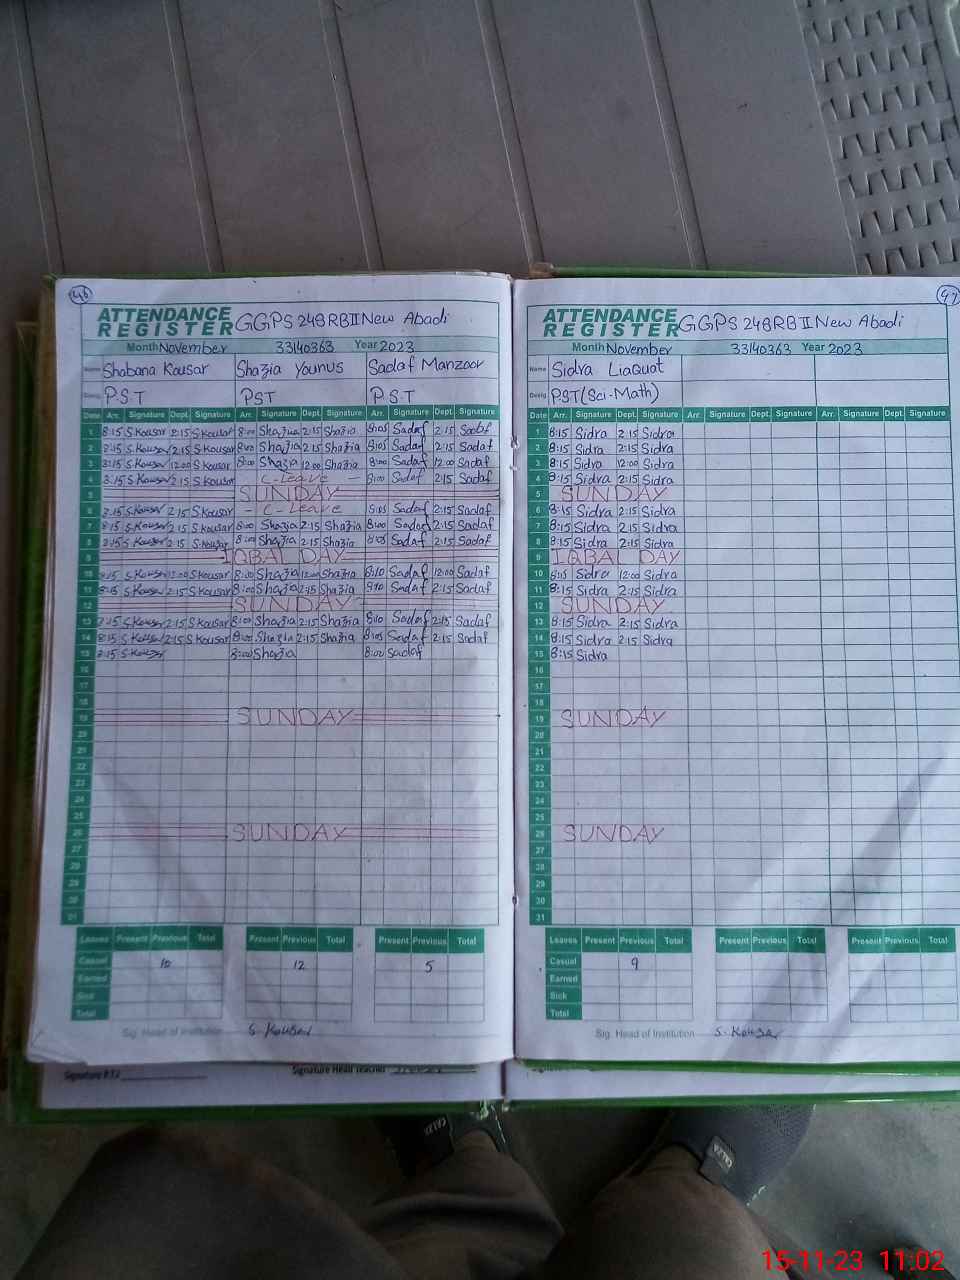 46
ATTENDANCE REGISTER GGPS 248 RB II New Abadi
Month November 33140363 Year 2023
Name Shabana Kousar Shazia Younus Sadaf Manzoor
Desig. P.S.T PST P.S.T
Date Arr. Signature Dept. Signature Arr. Signature Dept. Signature Arr. Signature Dept. Signature
1 8:15 S.Kousar 2:15 S.Kousar 8:00 Shazia 2:15 Shazia 8:05 Sadaf 2:15 Sadaf
2 8:15 S.Kousar 2:15 S.Kousar 8:00 Shazia 2:15 Shazia 8:05 Sadaf 2:15 Sadaf
3 8:15 S.Kousar 12:00 S.Kousar 8:00 Shazia 12:00 Shazia 8:00 Sadaf 12:00 Sadaf
4 8:15 S.Kousar 2:15 S.Kousar C-Leave 8:00 Sadaf 2:15 Sadaf
5 SUNDAY
6 8:15 S.Kousar 2:15 S.Kousar C-Leave 8:05 Sadaf 2:15 Sadaf
7 8:15 S.Kousar 2:15 S.Kousar 8:00 Shazia 2:15 Shazia 8:00 Sadaf 2:15 Sadaf
8 8:15 S.Kousar 2:15 S.Kousar 8:00 Shazia 2:15 Shazia 8:05 Sadaf 2:15 Sadaf
9 IQBAL DAY
10 8:15 S.Kousar 12:00 S.Kousar 8:00 Shazia 12:00 Shazia 8:10 Sadaf 12:00 Sadaf
11 8:15 S.Kousar 2:15 S.Kousar 8:00 Shazia 2:15 Shazia 8:10 Sadaf 2:15 Sadaf
12 SUNDAY
13 8:15 S.Kousar 2:15 S.Kousar 8:00 Shazia 2:15 Shazia 8:10 Sadaf 2:15 Sadaf
14 8:15 S.Kousar 2:15 S.Kousar 8:00 Shazia 2:15 Shazia 8:05 Sadaf 2:15 Sadaf
15 8:15 S.Kousar 8:00 Shazia 8:00 Sadaf
16
17
18
19 SUNDAY
20
21
22
23
24
25
26 SUNDAY
27
28
29
30
31
Leaves Present Previous Total Present Previous Total Present Previous Total
Casual 10 12 5
Earned
Sick
Total
Sig. Head of Institution S. Kousar
Signature Head Teacher
47
ATTENDANCE REGISTER GGPS 248 RB II New Abadi
Month November 33140363 Year 2023
Name Sidra Liaquat
Desig. PST (Sci-Math)
Date Arr. Signature Dept. Signature Arr. Signature Dept. Signature Arr. Signature Dept. Signature
1 8:15 Sidra 2:15 Sidra
2 8:15 Sidra 2:15 Sidra
3 8:15 Sidra 12:00 Sidra
4 8:15 Sidra 2:15 Sidra
5 SUNDAY
6 8:15 Sidra 2:15 Sidra
7 8:15 Sidra 2:15 Sidra
8 8:15 Sidra 2:15 Sidra
9 IQBAL DAY
10 8:15 Sidra 12:00 Sidra
11 8:15 Sidra 2:15 Sidra
12 SUNDAY
13 8:15 Sidra 2:15 Sidra
14 8:15 Sidra 2:15 Sidra
15 8:15 Sidra
16
17
18
19 SUNDAY
20
21
22
23
24
25
26 SUNDAY
27
28
29
30
31
Leaves Present Previous Total Present Previous Total Present Previous Total
Casual 9
Earned
Sick
Total
Sig. Head of Institution S. Kousar
15-11-23 11:02